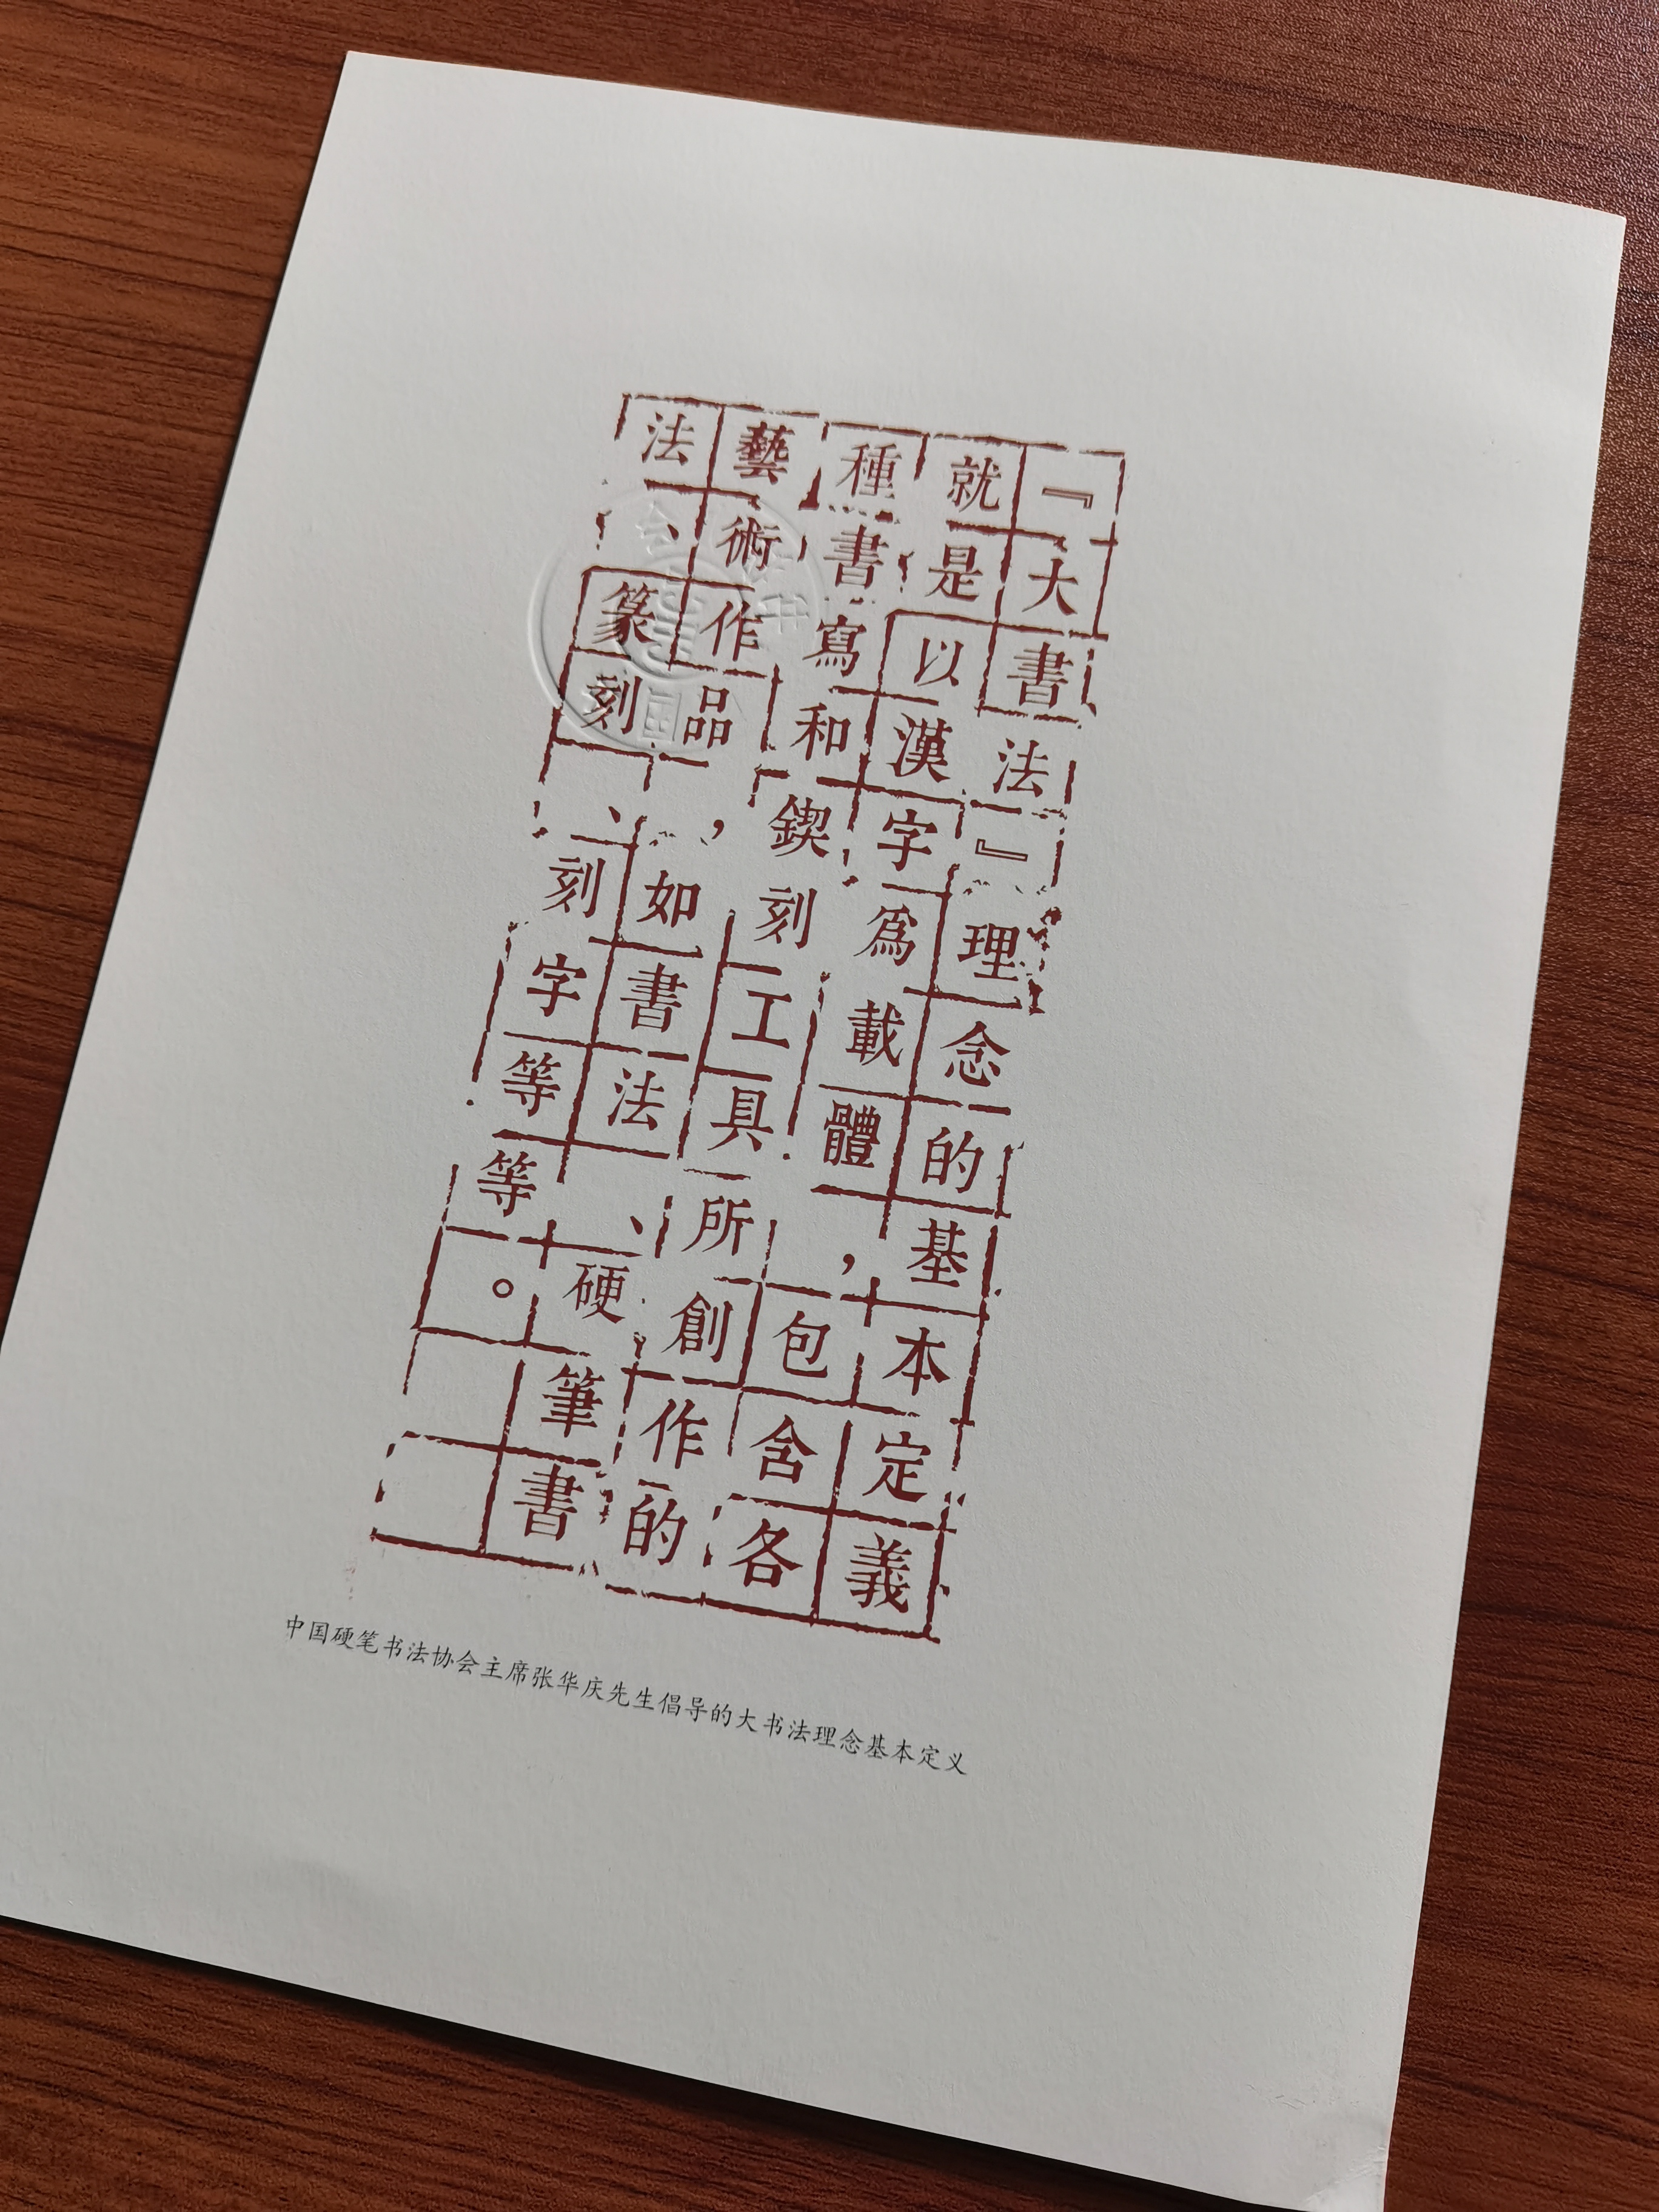 『大書法』理念的基本定義
就是以漢字為載體，包含各
種書寫和鍥刻工具所創作的
藝術作品，如書法、硬筆書
法、篆刻、刻字等等。
中国硬笔书法协会主席张华庆先生倡导的大书法理念基本定义